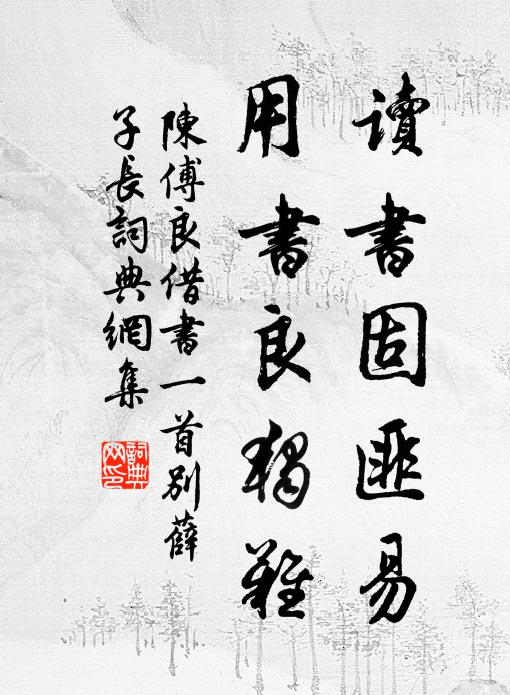 讀書固匪易
用書良獨難
陳傅良借書一首別薛
子長詞典網集
詞典
网印